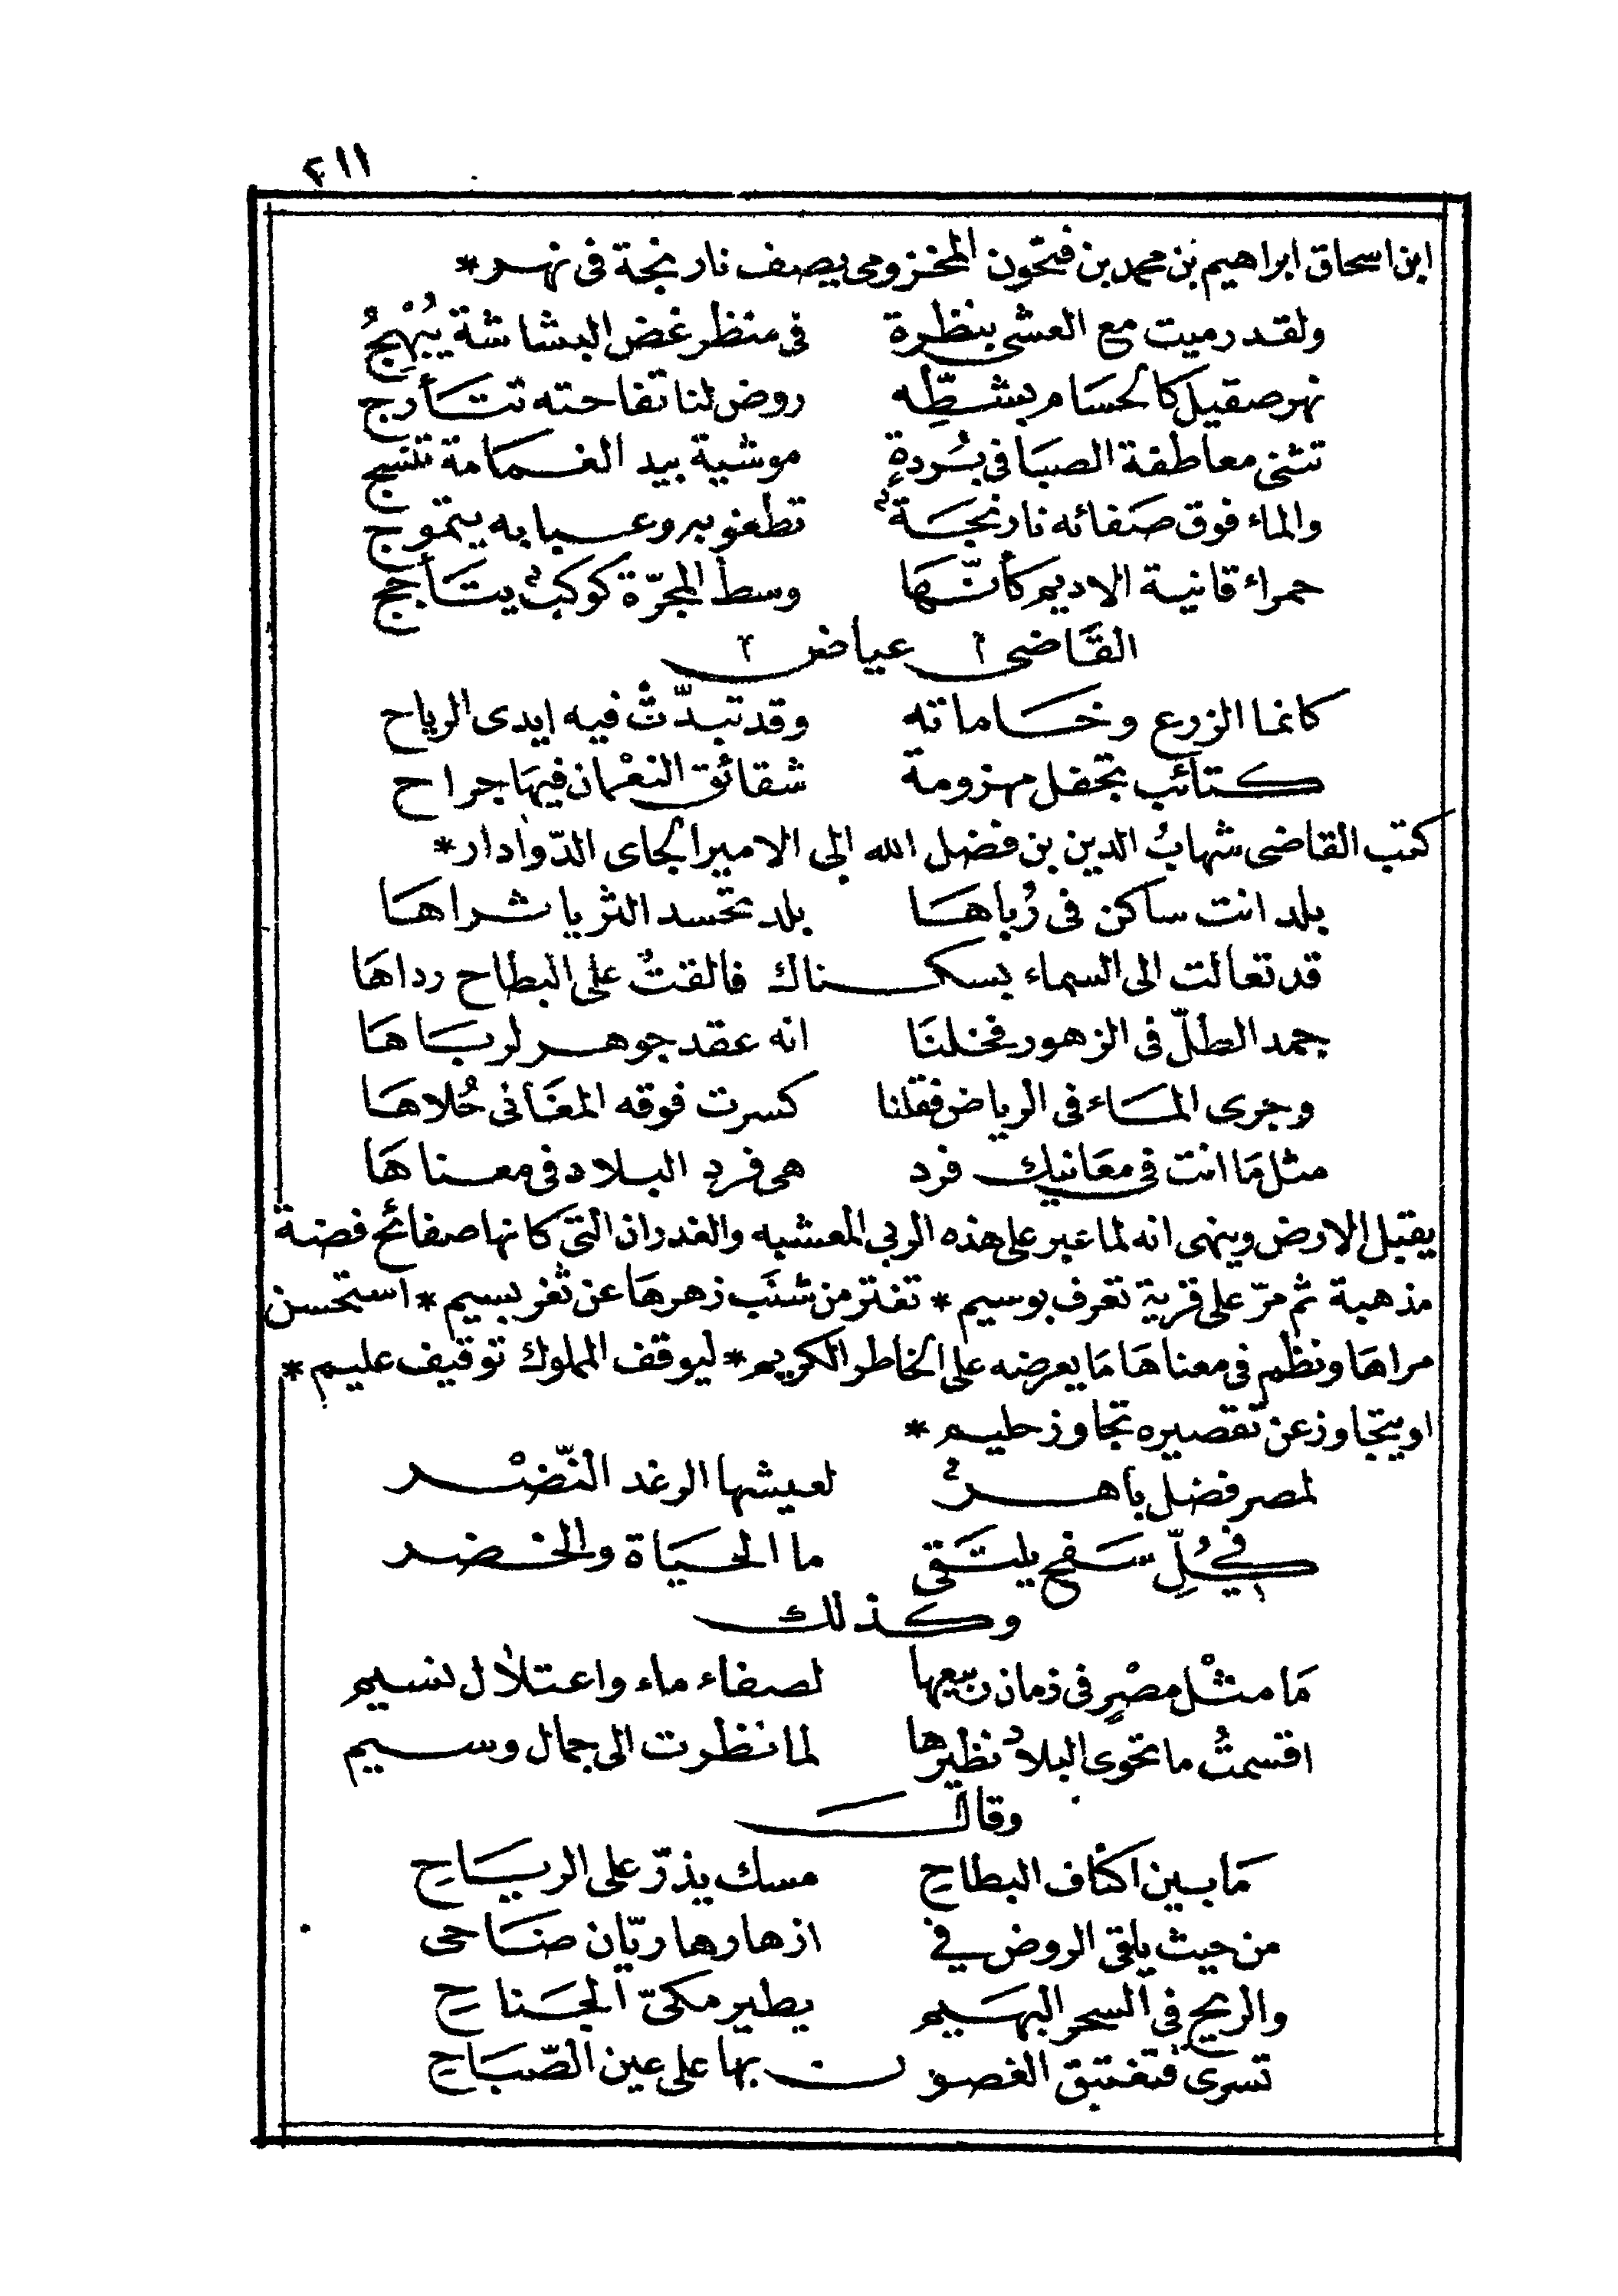 ٢١١
ابن اسحاق ابراهيم بن محمد بن فتحون المخزومى يصف نارنجة فى نهر *
ولقد رميت مع العشى بنظرة فى منظر غض البشاشة يُبْهِجُ
نهر صقيل كالحسام بشطِّه روض لنا تفاحته تتأرج
تثنى معاطفة الصبا فى بُردةٍ موشية بيد الغمامة تنسج
والماء فوق صفائه نارنجةٌ تطفو به وعبابه يتموج
حمراء قانية الاديم كأنّها وسط المجرّة كوكبٌ يتأجج
القاضى عياض
كانما الزرع وخاماته وقد تبدّت فيه ايدى الرياح
كتائب تجفل مهزومة شقائق النعْمان فيها جراح
كتب القاضى شهابُ الدين بن فضل الله الى الامير الجاى الدّوادار *
بلد انت ساكن فى رُباها بلد تحسد الثريا ثراها
قد تعالت الى السماء بسكناك فالقتْ على البطاح رداها
جمد الطلّ فى الزهور فخلنا انه عقد جوهر لرباها
وجرى الماء فى الرياض فقلنا كسرت فوقه المغانى حُلاها
مثل ما انت فى معانيك فرد هى فرد البلاد فى معناها
يقبل الارض وينهى انه لما عبر على هذه الربى المعشبه والغدران التى كانها صفائح فضة
مذهبة ثم مرّ على قرية تعرف بوسيم * تفتر من شنَب زهرها عن ثغر بسيم * استحسن
مراها ونظم فى معناها ما يعرضه على الخاطر الكريم * ليوقف المملوك توقيف عليم *
او يتجاوز عن تقصيره تجاوز حليم *
لمصر فضل باهرٌ لعيشها الرغد النّضْر
فى كُلِّ سَفح يلتقى ما الحياة والخضر
وكذلك
ما مثْل مصْرٍ فى زمان ربيعها لصفاء ماء واعتلال نسيم
اقسمتُ ما تحوى البلادُ نظيرها لما نظرت الى جمال وسيم
وقال
ما بين اكناف البطاحِ مسك يذرّ على الرياحِ
من حيث يلقى الروض فى ازهارها ريّان ضاحى
والريح فى السحر البهيم يطير مكىّ الجناحِ
تسرى فتغتبق الغصون بها على عين الصّباحِ